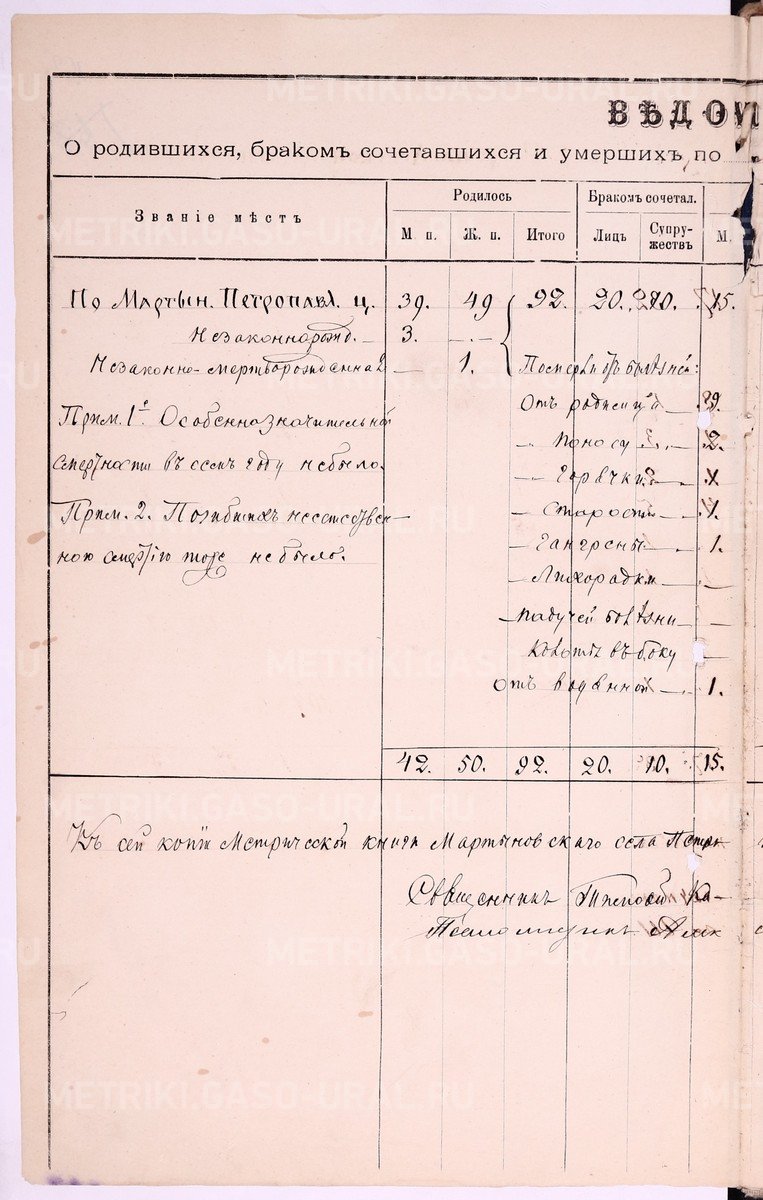 ВѢДОМ
О родившихся, бракомъ сочетавшихся и умершихъ по
Званіе мѣстъ
Родилось
Бракомъ сочетал.
М. п. Ж. п. Итого Лицъ Супружествъ М.
По Мартын. Петропавл. ц. 39. 49 92. 20. 10. 15.
Незаконнорожд. — 3. —.—
Незаконно-мертворожденна — 1. Померли отъ болѣзней:
Отъ родимца — 9.
Прим. 1е. Особеннозначительной — Поносу — 2.
смертности въ семъ году не было. — Горячки —
Прим. 2. Погибшихъ неестествен- — Старости — 1.
ною смертію тоже не было. — Гангрены — 1.
— Лихорадки — —
— Падучей болѣзни — —
Колотье въ боку —
Отъ водяной — 1.
42. 50. 92. 20. 10. 15.
Къ сей копіи Метрической книги Мартыновскаго села Петро
Священникъ Тимофей Ка-
Псаломщикъ Алек
METRIKI.GASO-URAL.RU